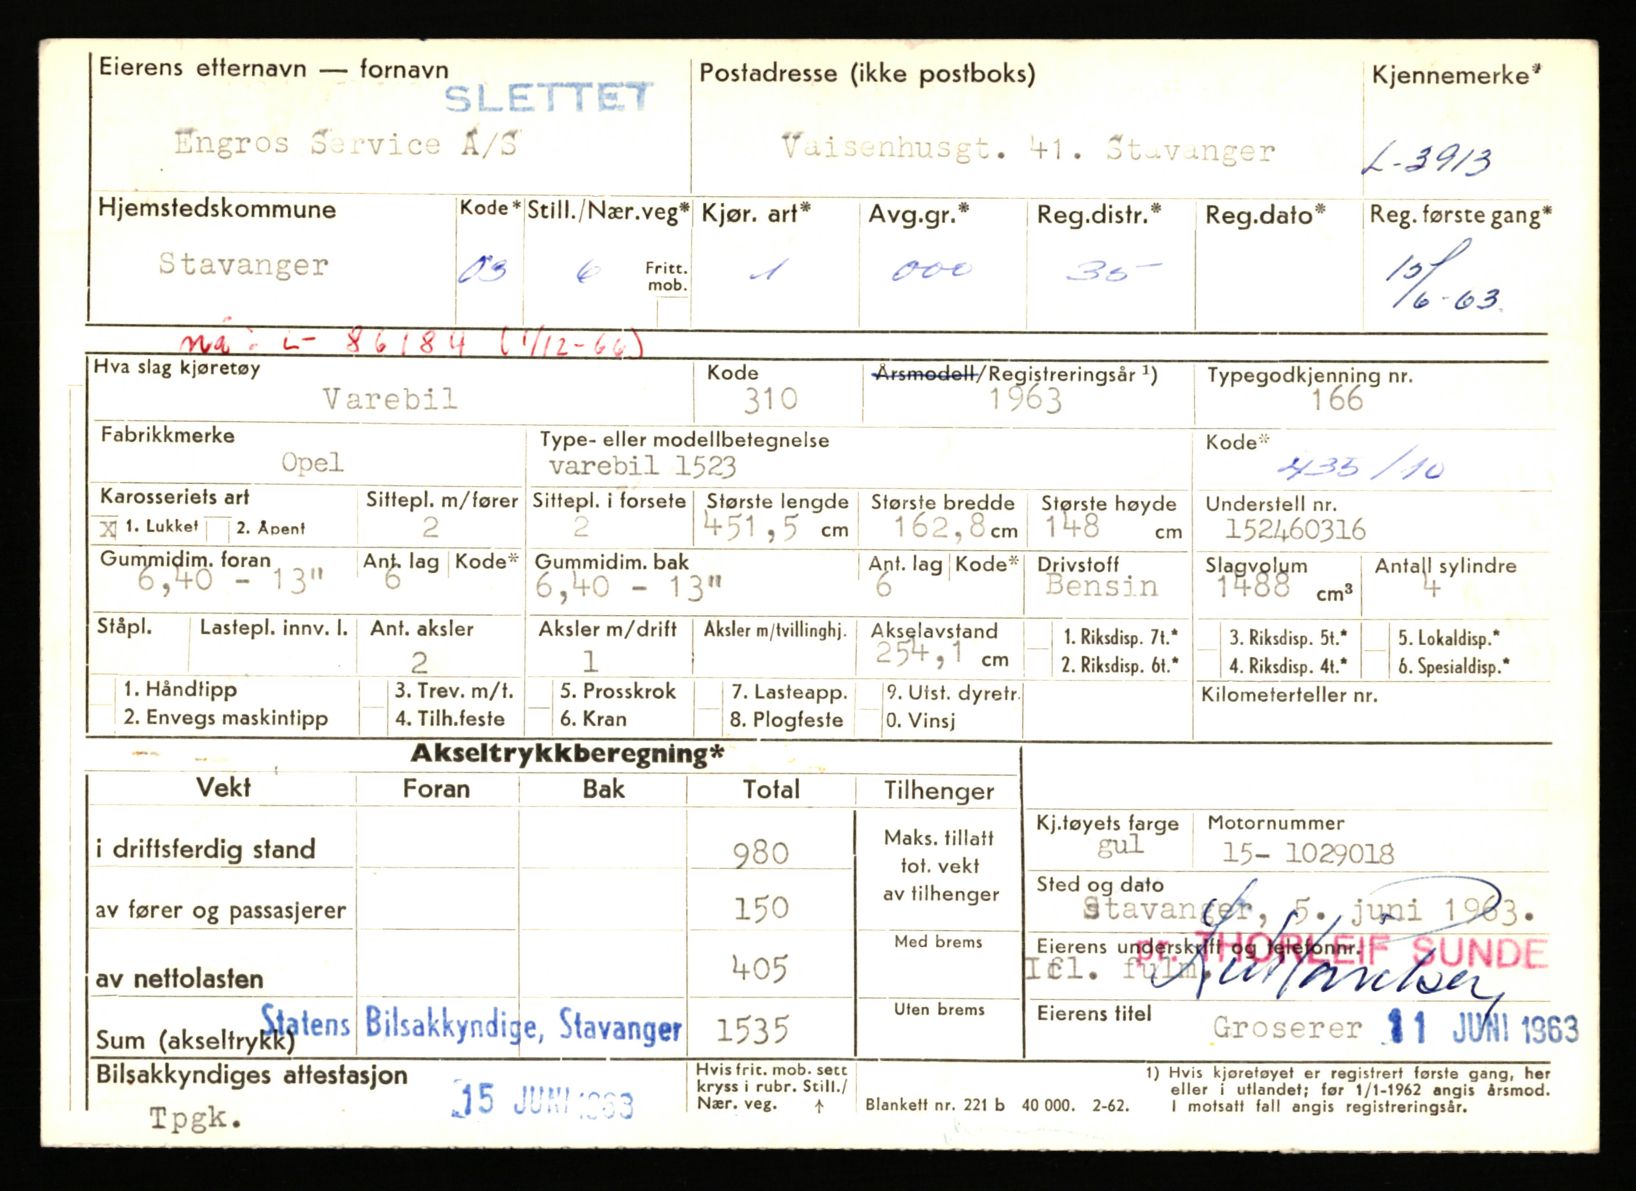 Eierens etternavn — fornavn
SLETTET
Engros Service A/S
Postadresse (ikke postboks)
Vaisenhusgt. 41. Stavanger
Kjennemerke*
L-3913
Hjemstedskommune
Stavanger
Kode*
03
Still./Nær.veg*
6
Fritt. mob.
Kjør. art*
1
Avg.gr.*
000
Reg.distr.*
35
Reg.dato*
Reg. første gang*
15/6-63
nå: L- 86184 (1/12-66)
Hva slag kjøretøy
Varebil
Kode
310
Årsmodell/Registreringsår ¹)
1963
Typegodkjenning nr.
166
Fabrikkmerke
Opel
Type- eller modellbetegnelse
varebil 1523
Kode*
435/10
Karosseriets art
X 1. Lukket 2. Åpent
Sittepl. m/fører
2
Sittepl. i forsete
2
Største lengde
451,5 cm
Største bredde
162,8 cm
Største høyde
148 cm
Understell nr.
152460316
Gummidim. foran
6,40 - 13"
Ant. lag
6
Kode*
Gummidim. bak
6,40 - 13"
Ant. lag
6
Kode*
Drivstoff
Bensin
Slagvolum
1488 cm³
Antall sylindre
4
Ståpl.
Lastepl. innv. l.
Ant. aksler
2
Aksler m/drift
1
Aksler m/tvillinghj.
Akselavstand
254,1 cm
1. Riksdisp. 7t.*
2. Riksdisp. 6t.*
3. Riksdisp. 5t.*
4. Riksdisp. 4t.*
5. Lokaldisp.*
6. Spesialdisp.*
1. Håndtipp
2. Envegs maskintipp
3. Trev. m/t.
4. Tilh.feste
5. Prosskrok
6. Kran
7. Lasteapp.
8. Plogfeste
9. Utst. dyretr.
0. Vinsj
Kilometerteller nr.
Akseltrykkberegning*
Vekt Foran Bak Total Tilhenger
i driftsferdig stand 980
av fører og passasjerer 150
av nettolasten 405
Sum (akseltrykk) 1535
Statens Bilsakkyndige, Stavanger
Maks. tillatt
tot. vekt
av tilhenger
Med brems
Uten brems
Kj.tøyets farge
gul
Motornummer
15- 1029018
Sted og dato
Stavanger, 5. juni 1963.
Eierens underskrift og telefonnr.
pr. THORLEIF SUNDE
Ifl. fulm.
Eierens titel
Groserer
11 JUNI 1963
Bilsakkyndiges attestasjon
Tpgk.
15 JUNI 1963
Hvis frit. mob. sett
kryss i rubr. Still./
Nær. veg. ↑
Blankett nr. 221 b 40 000. 2-62.
1) Hvis kjøretøyet er registrert første gang, her
eller i utlandet; før 1/1-1962 angis årsmod.
I motsatt fall angis registreringsår.